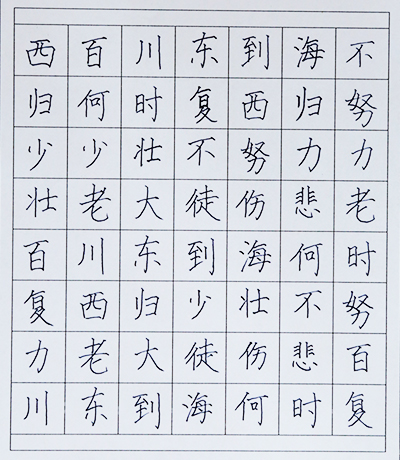 西百川东到海不
归何时复西归努
少少壮不努力力
壮老大徒伤悲老
百川东到海何时
复西归少壮不努
力老大徒伤悲百
川东到海何时复